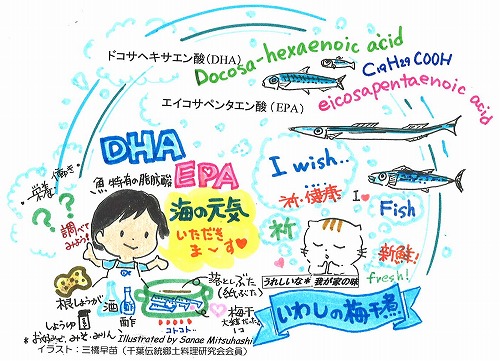 ドコサヘキサエン酸(DHA)
Docosa-hexaenoic acid
C19H29COOH
エイコサペンタエン酸(EPA)
eicosapentaenoic acid
DHA
EPA
魚特有の脂肪酸
栄養 働き
??
調べて
みよう!
海の元気
いただき
ま〜す♥
I wish...
祈・健康
祈
I♥
Fish
新鮮!
fresh!
うれしいな* 我が家の味
いわしの梅干煮
根しょうが
しょうゆ
酒
酢
コトコト…
落としぶた
(紙ぶた)
梅干
Illustrated by Sanae Mitsuhashi
イラスト:三橋早苗(千葉伝統郷土料理研究会会員)